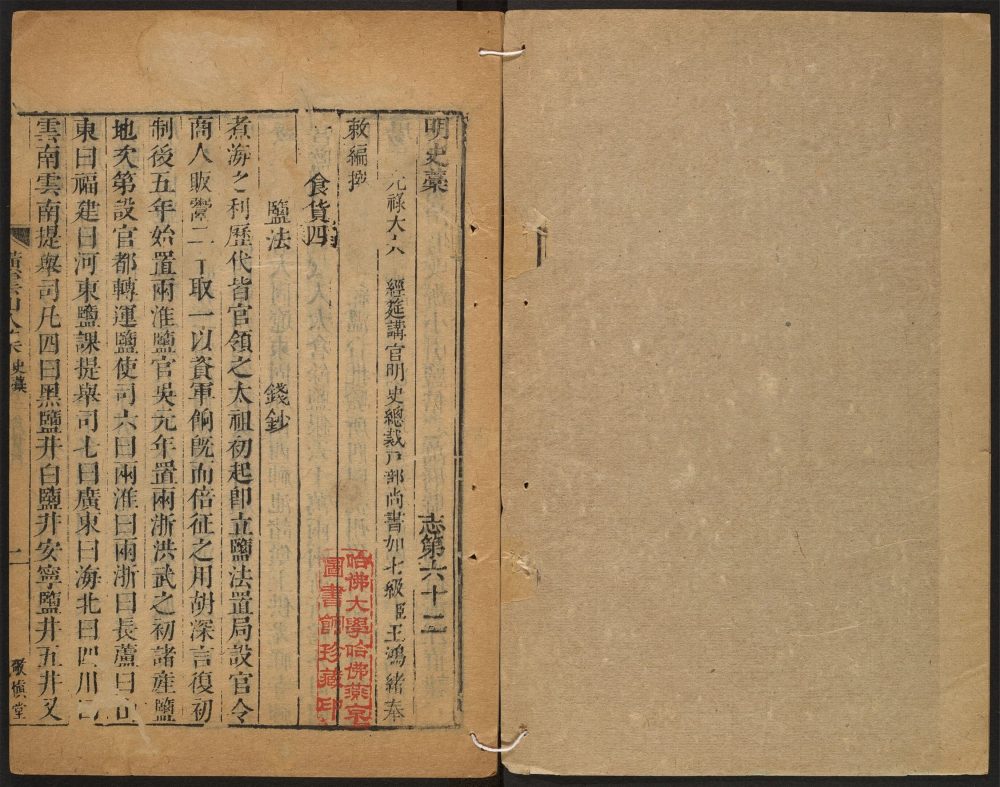 明史藁 志第六十二
光祿大夫 經筵講官明史總裁戶部尚書加七級臣王鴻緒奉
敕編撰
食貨四
鹽法 錢鈔
煮海之利歷代皆官領之太祖初起卽立鹽法置局設官令
商人販鬻二十取一以資軍餉旣而倍征之用胡深言復初
制後五年始置兩淮鹽官吳元年置兩浙洪武之初諸產鹽
地次第設官都轉運鹽使司六曰兩淮曰兩浙曰長蘆曰山
東曰福建曰河東鹽課提舉司七曰廣東曰海北曰四川曰
雲南雲南提舉司凡四曰黑鹽井白鹽井安寧鹽井五井又
史藁 一 敬愼堂
哈佛大學哈佛燕京
圖書館珍藏印